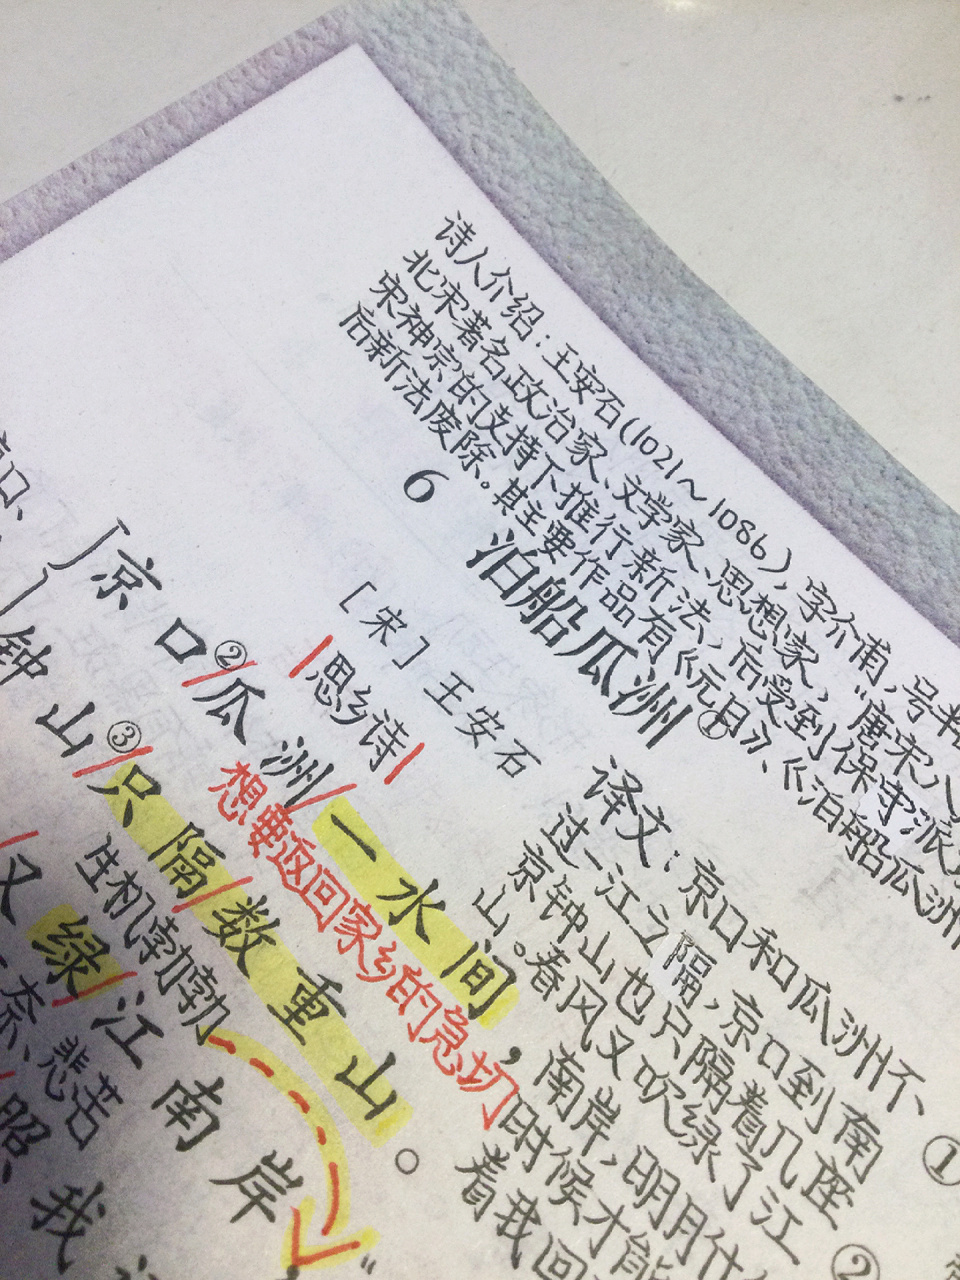 诗人介绍：王安石(1021～1086)，字介甫，号半
北宋著名政治家、文学家、思想家，“唐宋八
宋神宗的支持下推行新法，后受到保守派
后新法废除。其主要作品有《元日》、《泊船瓜洲
6 泊船瓜洲①
[宋]王安石
思乡诗
京口②瓜洲一水间，
想要返回家乡的急切
钟山③只隔数重山。
生机勃勃
又绿江南岸
悲苦
照我
译文：京口和瓜洲不
过一江之隔，京口到南
京钟山也只隔着几座
山。春风又吹绿了江
南岸，明月什
时候才能
着我回
①
②